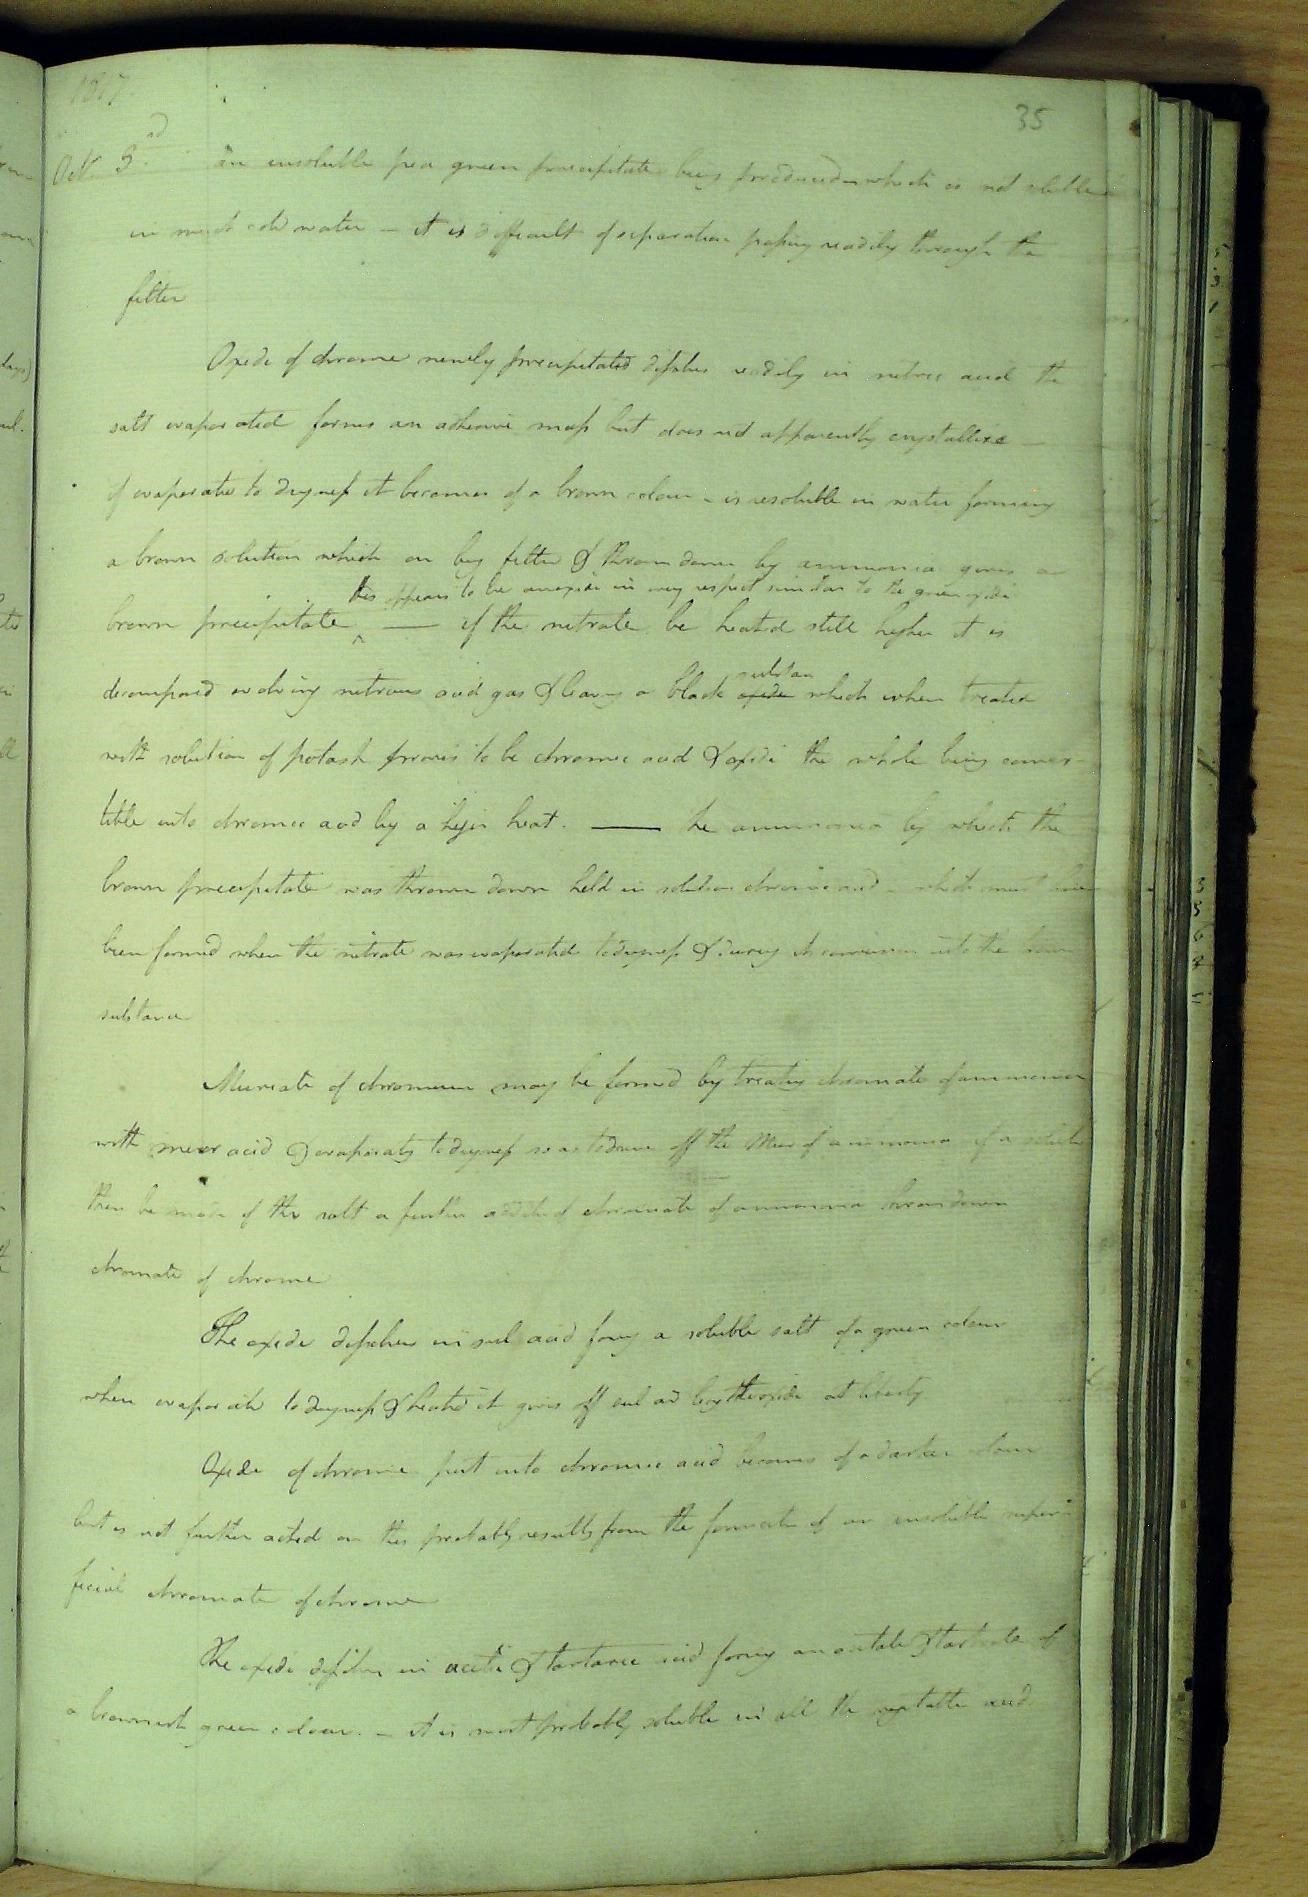 1817
35
Oct 3rd an insoluble pea green precipitate being produced which is not soluble
in much cold water - it is difficult of separation passing readily through the
filter
Oxide of chrome newly precipitated dissolves readily in nitric acid the
salt evaporated forms an adhesive mass but does not apparently crystallize -
if evaporated to dryness it becomes of a brown colour - is resoluble in water forming
a brown solution which on beg filterd & thrown down by ammonia gives a
this appears to be an oxide in every respect similar to the green oxide
brown precipitate ^ — if the nitrate be heated still higher it is
substan
decomposed evolving nitrous acid gas & leaving a black oxide which when treated
with solution of potash proves to be chromic acid & oxide the whole being conver-
tible into chromic acid by a higher heat. — the ammonia by which the
brown precipitate was thrown down held in solution chromic acid - which must have
been formed when the nitrate was evaporated to dryness & during its conversion into the brown
substance
Muriate of chromium may be formed by treating chromate of ammonia
with mur acid & evaporatg to dryness so as to drive off the Mur of ammonia if a solution
then be made of the salt a further addition of chromate of ammonia throws down
chromate of chrome
The oxide dissolves in sul acid formg a soluble salt of a green colour
when evaporated to dryness & heated it gives off sul acid leavg the oxide at liberty
Oxide of chrome put into chromic acid becomes of a darker colour
but is not further acted on this probably results from the formation of an insoluble super-
ficial chromate of chrome
The oxide dissolves in acetic & tartaric acid formg an acetate & tartrate of
a brownish green colour. - it is most probably soluble in all the vegetable acids